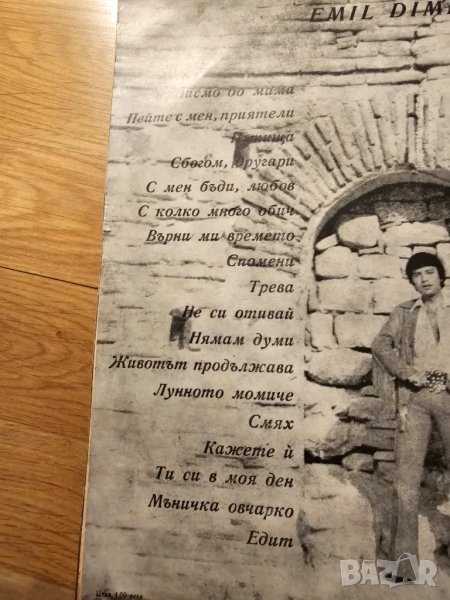 EMIL DIM
Писмо до мама
Пейте с мен, приятели
Пътища
Сбогом, другари
С мен бъди, любов
С колко много обич
Върни ми времето
Спомени
Трева
Не си отивай
Нямам думи
Животът продължава
Лунното момиче
Смях
Кажете ѝ
Ти си в моя ден
Мъничка овчарко
Едит
Цена 4,60 лева
BAZAR